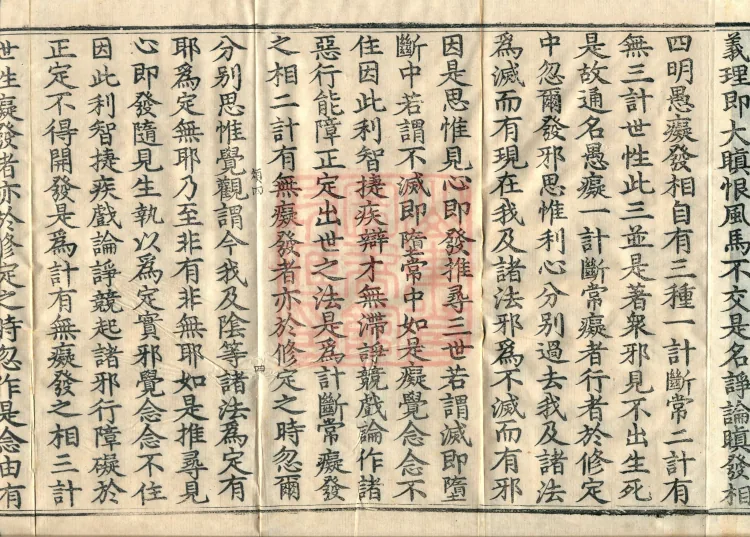 義理即大瞋恨風馬不交是名諍論瞋發相
四明愚癡發相自有三種一計斷常二計有
無三計世性此三並是著衆邪見不出生死
是故通名愚癡一計斷常癡者行者於修定
中忽爾發邪思惟利心分别過去我及諸法
爲滅而有現在我及諸法邪爲不滅而有邪
因是思惟見心即發推尋三世若謂滅即墮
斷中若謂不滅即墮常中如是癡覺念念不
住因此利智捷疾辯才無滯諍競戲論作諸
惡行能障正定出世之法是爲計斷常癡發
之相二計有無癡發者亦於修定之時忽爾
類四
四
分别思惟覺觀謂今我及陰等諸法爲定有
耶爲定無耶乃至非有非無耶如是推尋見
心即發隨見生執以爲定實邪覺念念不住
因此利智捷疾戲論諍競起諸邪行障礙於
正定不得開發是爲計有無癡發之相三計
世性癡發者亦於修定之時忽作是念由有